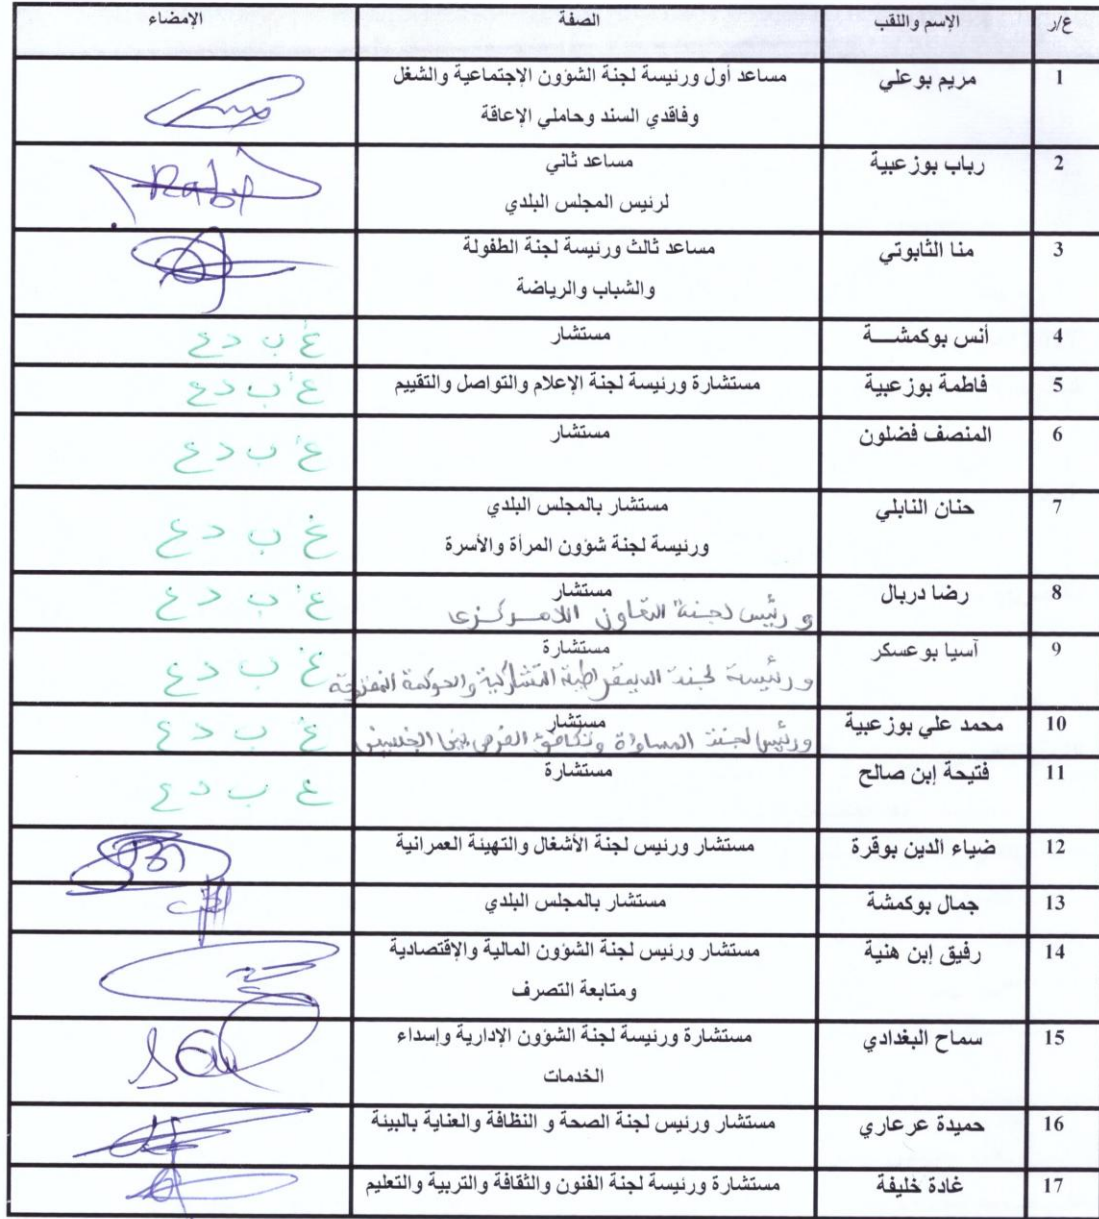 ع/ر الإسم واللقب الصفة الإمضاء
1 مريم بوعلي مساعد أول ورئيسة لجنة الشؤون الإجتماعية والشغل
وفاقدي السند وحاملي الإعاقة
2 رباب بوزعبية مساعد ثاني Rabeb
لرئيس المجلس البلدي
3 منا الثابوتي مساعد ثالث ورئيسة لجنة الطفولة
والشباب والرياضة
4 أنس بوكمشـــة مستشار غ ب د ع
5 فاطمة بوزعبية مستشارة ورئيسة لجنة الإعلام والتواصل والتقييم غ ب د ع
6 المنصف فضلون مستشار غ ب د ع
7 حنان النابلي مستشار بالمجلس البلدي غ ب د ع
ورئيسة لجنة شؤون المرأة والأسرة
8 رضا دربال مستشار غ ب د ع
و رئيس لجنة التعاون اللامركزي
9 آسيا بوعسكر مستشارة غ ب د ع
ورئيسة لجنة الديمقراطية التشاركية والحوكمة المفتوحة
10 محمد علي بوزعبية مستشار غ ب د ع
ورئيس لجنة المساواة وتكافؤ الفرص بين الجنسين
11 فتيحة إبن صالح مستشارة غ ب د ع
12 ضياء الدين بوقرة مستشار ورئيس لجنة الأشغال والتهيئة العمرانية
13 جمال بوكمشة مستشار بالمجلس البلدي
14 رفيق إبن هنية مستشار ورئيس لجنة الشؤون المالية والإقتصادية
ومتابعة التصرف
15 سماح البغدادي مستشارة ورئيسة لجنة الشؤون الإدارية وإسداء
الخدمات
16 حميدة عرعاري مستشار ورئيس لجنة الصحة و النظافة والعناية بالبيئة
17 غادة خليفة مستشارة ورئيسة لجنة الفنون والثقافة والتربية والتعليم